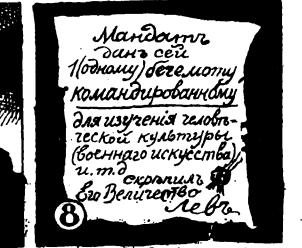 Мандатъ
данъ сей
1(одному) бегемоту
командированному
для изученія человѣ-
ческой культуры
(военнаго искусства)
и.т.д
скрѣпилъ
Его Величество
Левъ
8